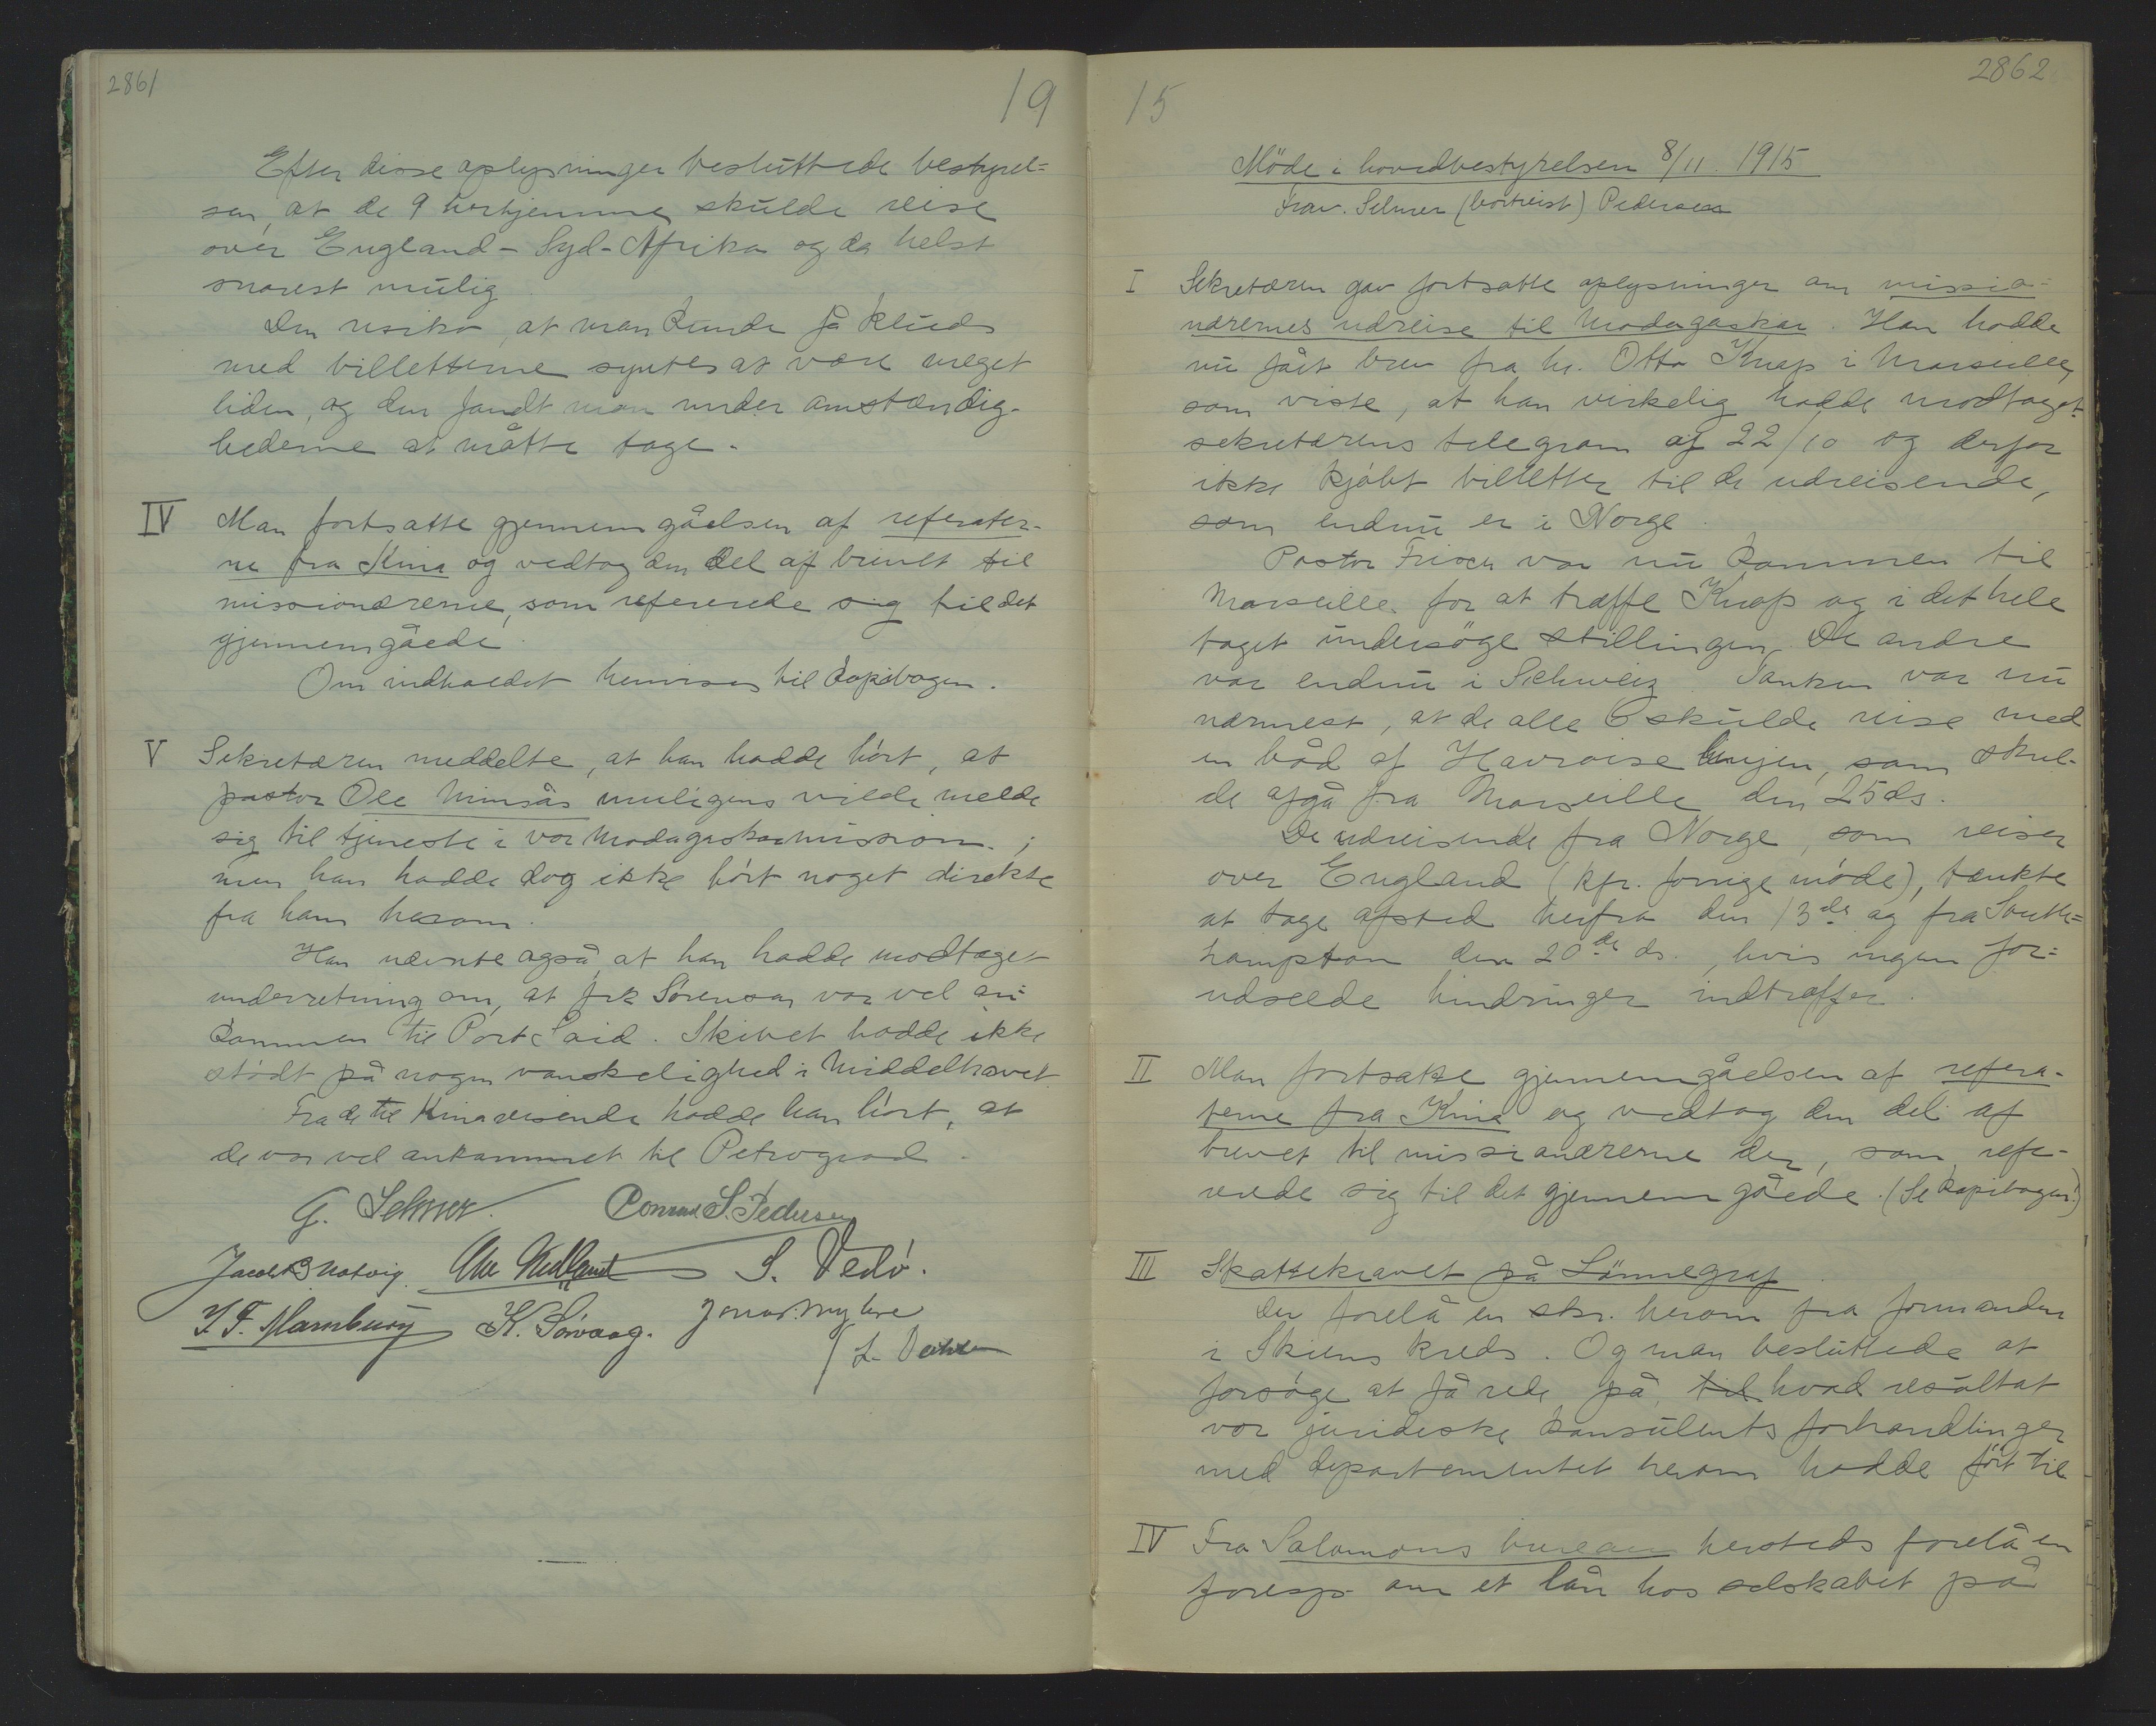 2861
19
Efter disse oplysninger besluttede bestyrel=
sen, at de 9 herhjemme skulde reise
over England - Syd-Afrika og da helst
snarest mulig
Den risiko, at man kunde få kluds
med billetterne syntes at være meget
liden, og den fandt man under omstændig-
hederne at måtte tage.
IV Man fortsatte gjennemgåelsen af referater-
ne fra Kina og vedtog den del af brevet til
missionærerne, som refererede sig til det
gjennemgåede
Om indholdet henvises til kopibogen.
V Sekretæren meddelte, at han hadde hört, at
pastor Ole mulígens vilde melde
sig til tjeneste i vor Madagaskarmission. ;
men han hadde dog ikke hört noget direkte
fra ham herom.
Han nævnte også, at han hadde modtaget
underretning om, at frk Sörensen var vel an-
kommen til Port Said. Skibet hadde ikke
stödt på nogen vanskelighed i Middelhavet
Fra de til Kina reisende hadde han hört, at
de var vel ankommet til Petrograd.
G. Selmer. Conrad S. Pedersen
Jacob Natvig. S. Vedö.
K. Sövaag. Jonas Myhre
2862
15
Möde i hovedbestyrelsen 8/11. 1915
Frav. Selmer (bortreist) Pedersen
I Sekretæren gav fortsatte oplysninger om missio-
nærernes udreise til Madagaskar. Han hadde
nu fåt brev fra hr. Otto Knap i Marseille,
som viste, at han virkelig hadde modtaget
sekretærens telegram af 22/10 og derfor
ikke kjöbt billetter til de udreisende,
som endnu er i Norge.
Pastor Frisch var nu kommen til
Marseille for at træffe Knap og i det hele
taget undersöge stillingen. De andre
var endnu i Schweiz. Tanken var nu
nærmest, at de alle 6 skulde reise med
en båd af Havraise linjen, som skul-
de afgå fra Marseille den 25 ds.
De udreisende fra Norge, som reiser
over England (kfr. forrige möde), tænkte
at tage afsted herfra den 13de og fra South=
hampton den 20de ds., hvis ingen for=
udseede hindringer indtræffer.
II Man fortsatte gjennemgåelsen af refera-
terne fra Kina og vedtog den del af
brevet til missionærerne der, som refe-
rerede sig til det gjennemgåede. (Se kopibogen!)
III Skattekravet på Lönnegraf
Der forelå en skr. herom fra formanden
i Skiens kreds. Og man besluttede at
forsöge at få rede på, til hvad resultat
vor juridiske konsulents forhandlinger
med departementet herom hadde fört til
IV Fra Salomons bureau hersteds forelå en
foresp. om et lån hos selskabet på